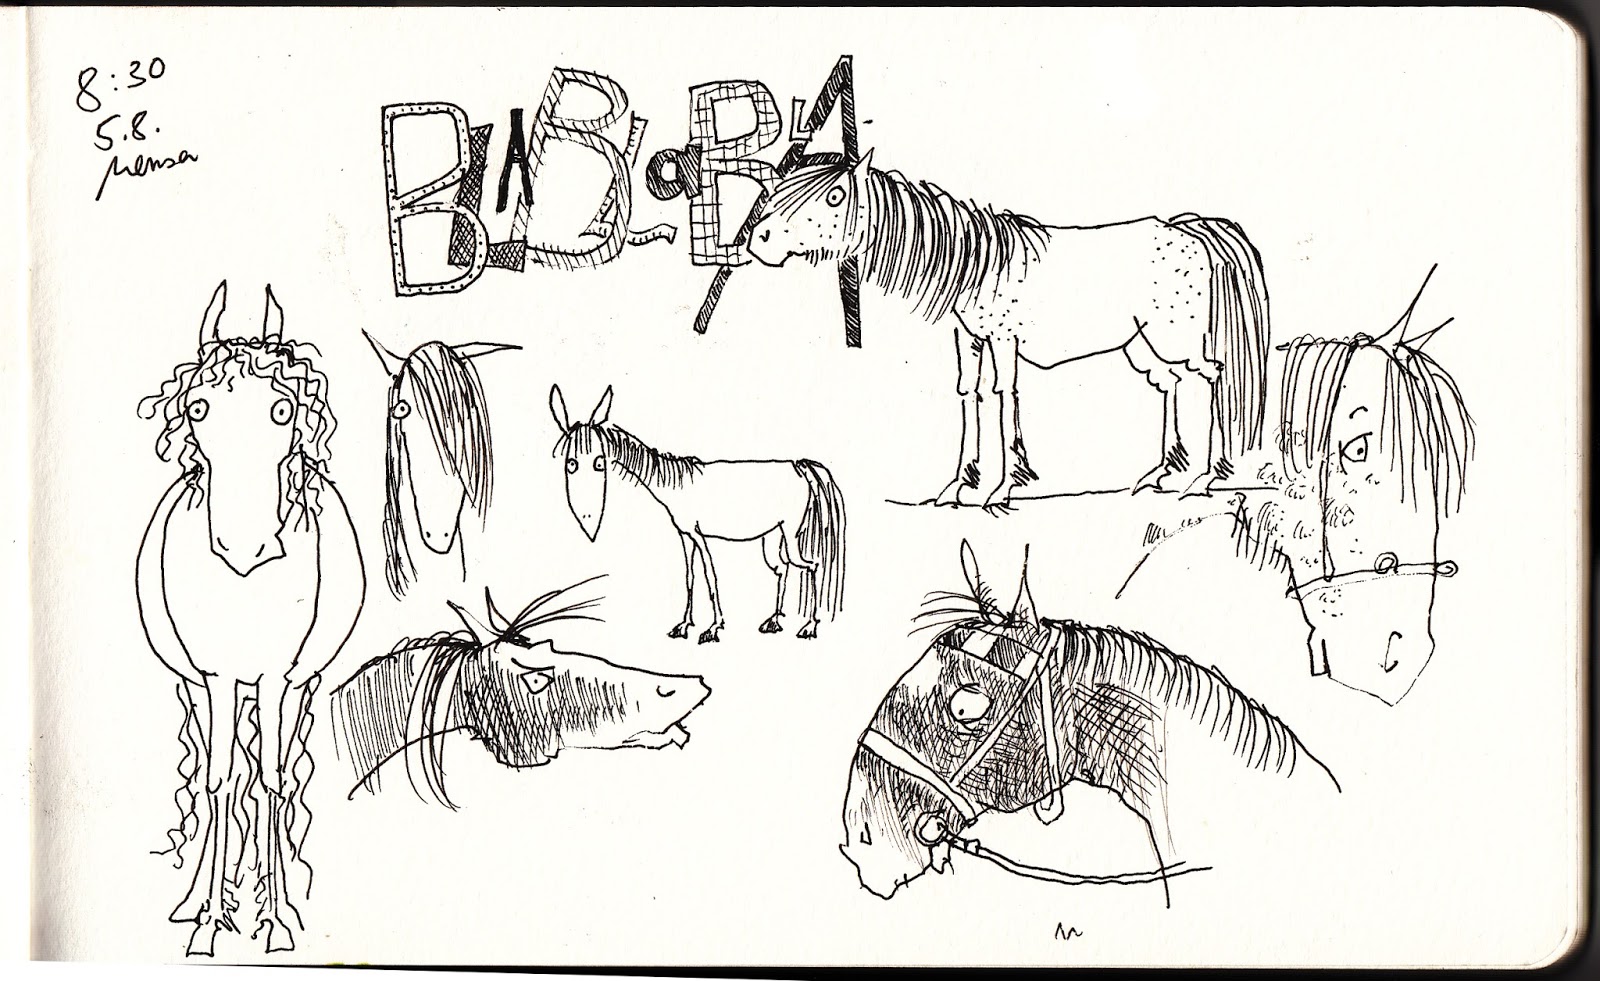 8:30
5.8.
Mensa
BLABLaBLA